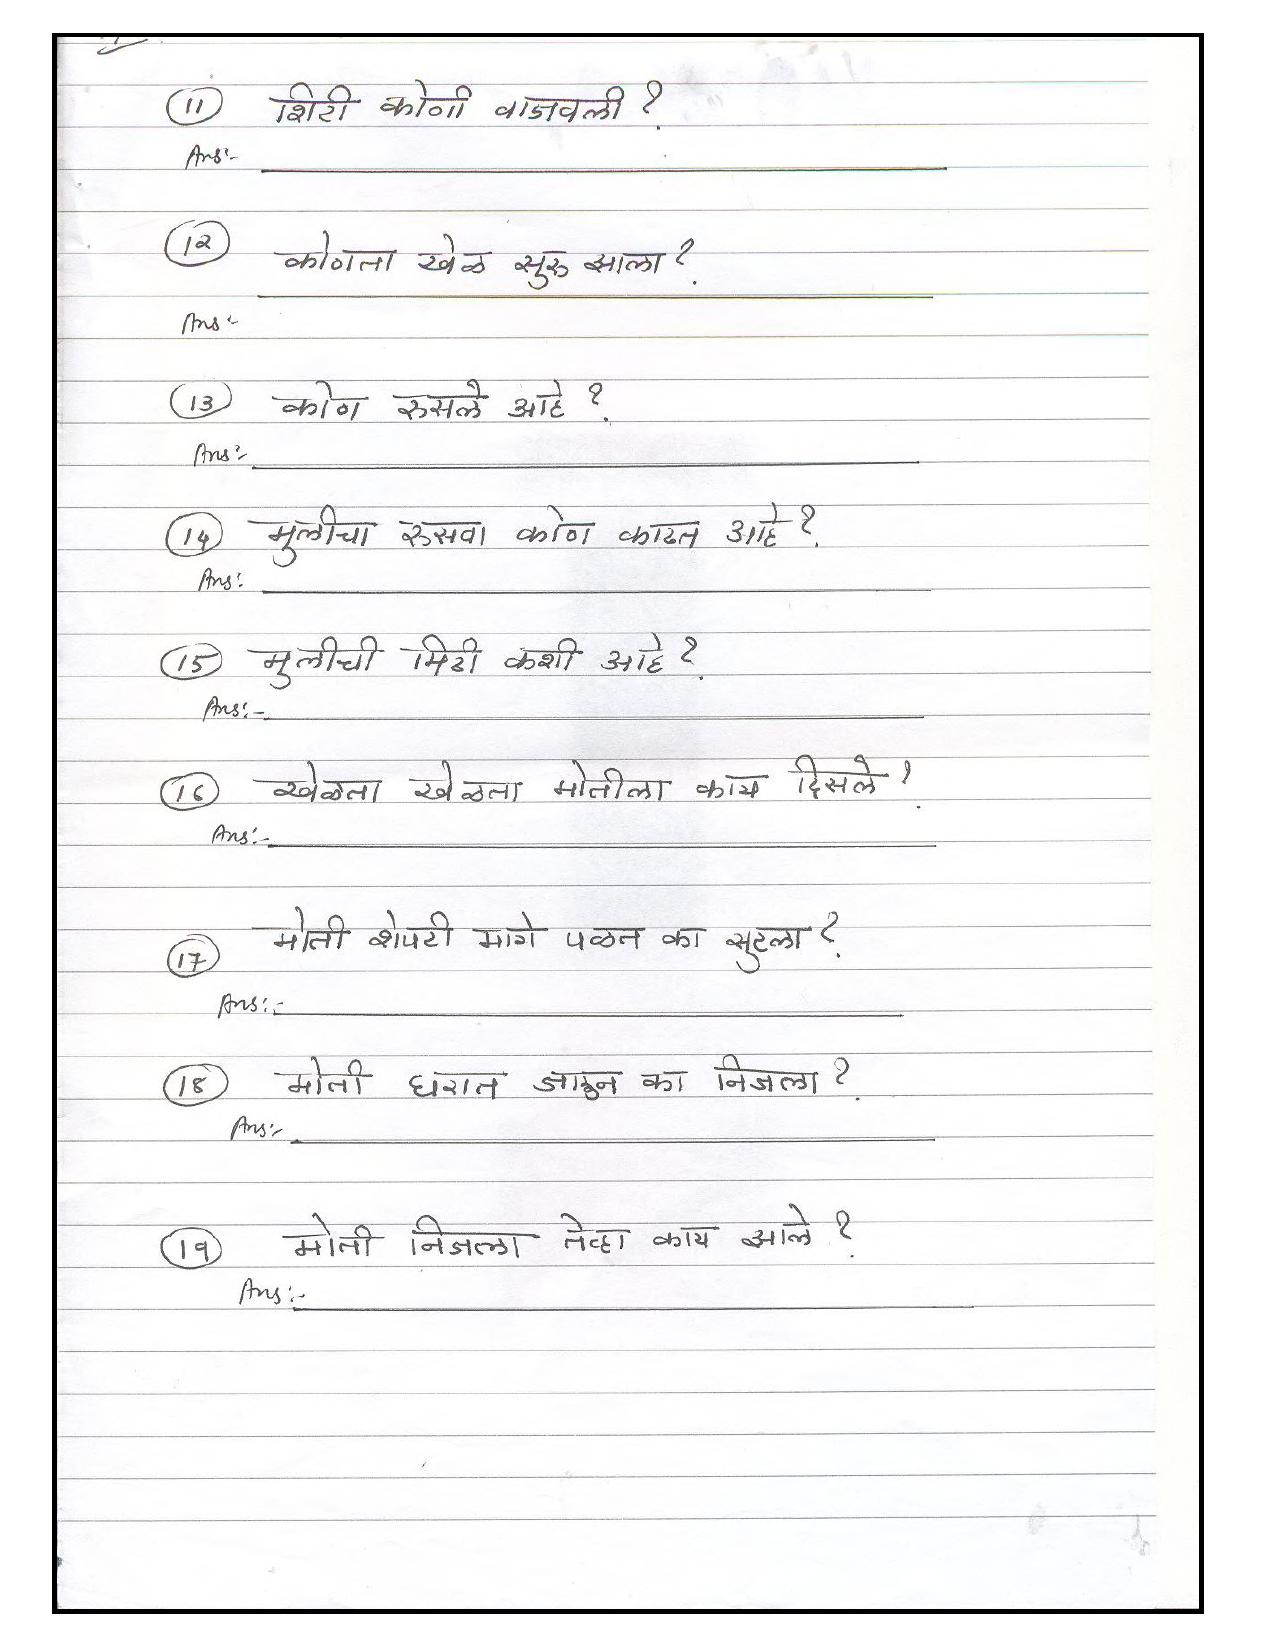 11 शिटी कोणी वाजवली ?
Ans:-
12 कोणता खेळ सुरु झाला ?
Ans:-
13 कोण रुसले आहे ?
Ans:-
14 मुलीचा रुसवा कोण काढत आहे ?
Ans:
15 मुलीची मिठी कशी आहे ?
Ans:-
16 खेळता खेळता मोतीला काय दिसले ?
Ans:-
17 मोती शेपटी मागे पळत का सुटला ?
Ans:-
18 मोती घरात जाऊन का निजला ?
Ans:-
19 मोती निजला तेव्हा काय झाले ?
Ans:-